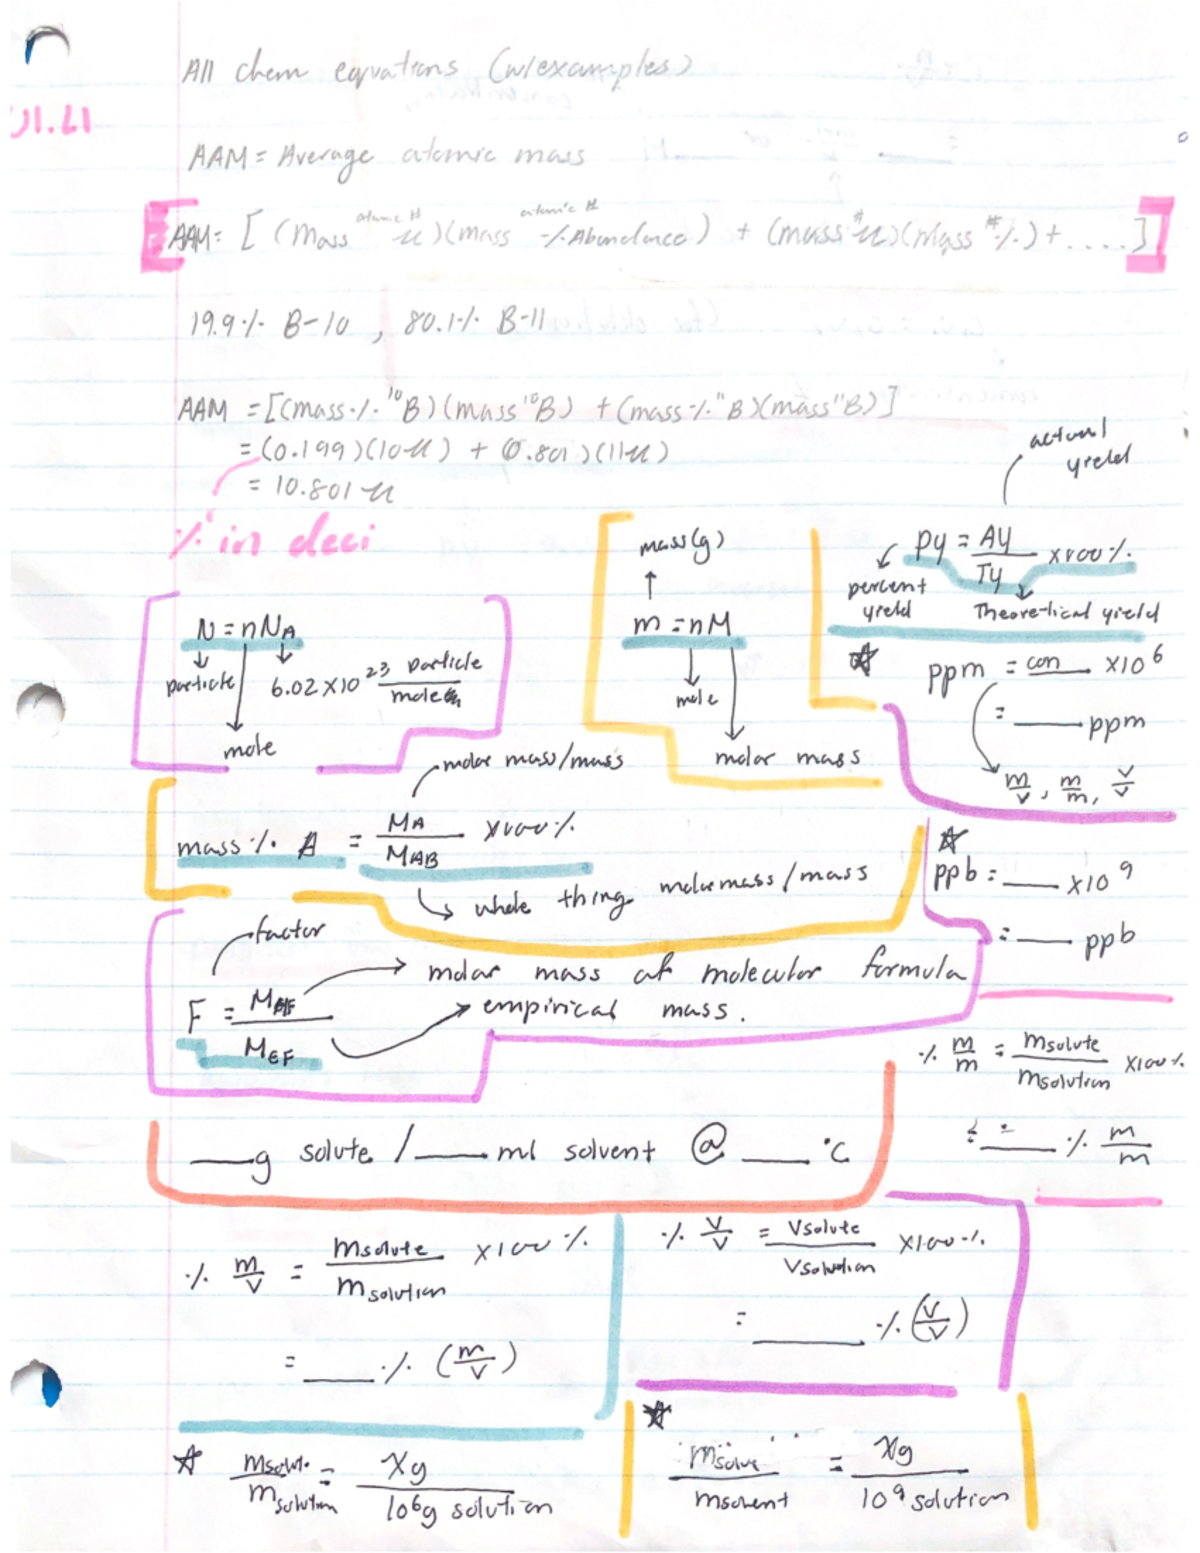 All chem equations (w/examples)
U1.L1
AAM = Average atomic mass
atomic # atomic #
AAM = [ (mass u)(mass % Abundance) + (mass # u)(mass # %) + .... ]
19.9% B-10 , 80.1% B-11
AAM = [(mass % ¹⁰B)(mass ¹⁰B) + (mass % ¹¹B)(mass ¹¹B)]
= (0.199)(10u) + (0.801)(11u)
= 10.801 u
% in deci
actual yield
PY = AY/TY x100%
percent yield
Theoretical yield
mass(g)
m = nM
mole
molar mass
N = nNA
particle
6.02 x10²³ particle/mole
mole
☆ ppm = con x10⁶
= ____ ppm
m/v, m/m, v/v
molar mass/mass
mass % A = MA/MAB x100%
whole thing molar mass/mass
☆
ppb = ____ x10⁹
= ____ ppb
factor
F = MMF/MEF
molar mass of molecular formula
empirical mass.
% m/m = msolute/msolution x100%
= ____ % m/m
____g solute / ____ ml solvent @ ____ °C
% m/v = msolute/msolution x100%
= ____ % (m/v)
% v/v = Vsolute/Vsolution x100%
= ____ % (v/v)
☆ msolute/msolution = Xg/10⁶g solution
☆ msolute/msolvent = Xg/10⁹ solution